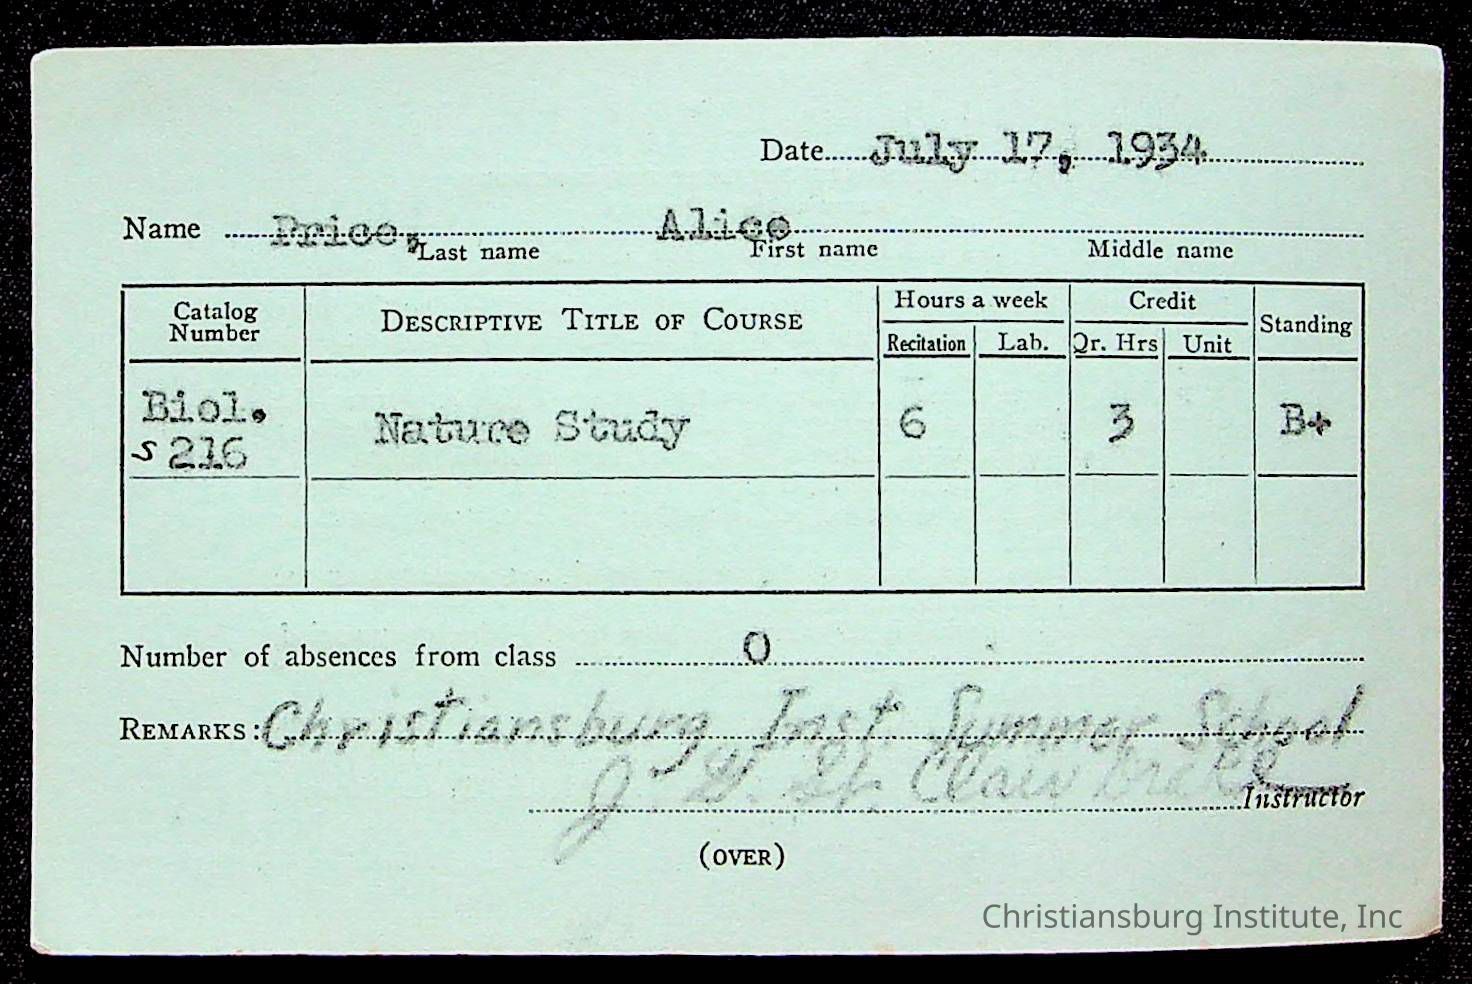 Date July 17, 1934
Name Price, Alice
Last name First name Middle name
Catalog Number DESCRIPTIVE TITLE OF COURSE Hours a week Credit Standing
Recitation Lab. Qr. Hrs Unit
Biol. s 216 Nature Study 6 3 B+
Number of absences from class 0
REMARKS: Christiansburg Inst. Summer School
J. G. St. Clair Drake
Instructor
(OVER)
Christiansburg Institute, Inc